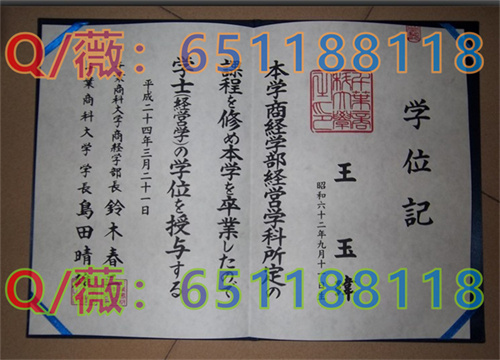 Q/薇：651188118
学位記
王玉
昭和六十二年九月十
本学商経学部経営学科所定の
課程を修め本学を卒業したので
学士(経営学)の学位を授与する
平成二十四年三月二十一日
千葉商科大学商経学部長 鈴木春
千葉商科大学学長 島田晴
Q/薇：651188118